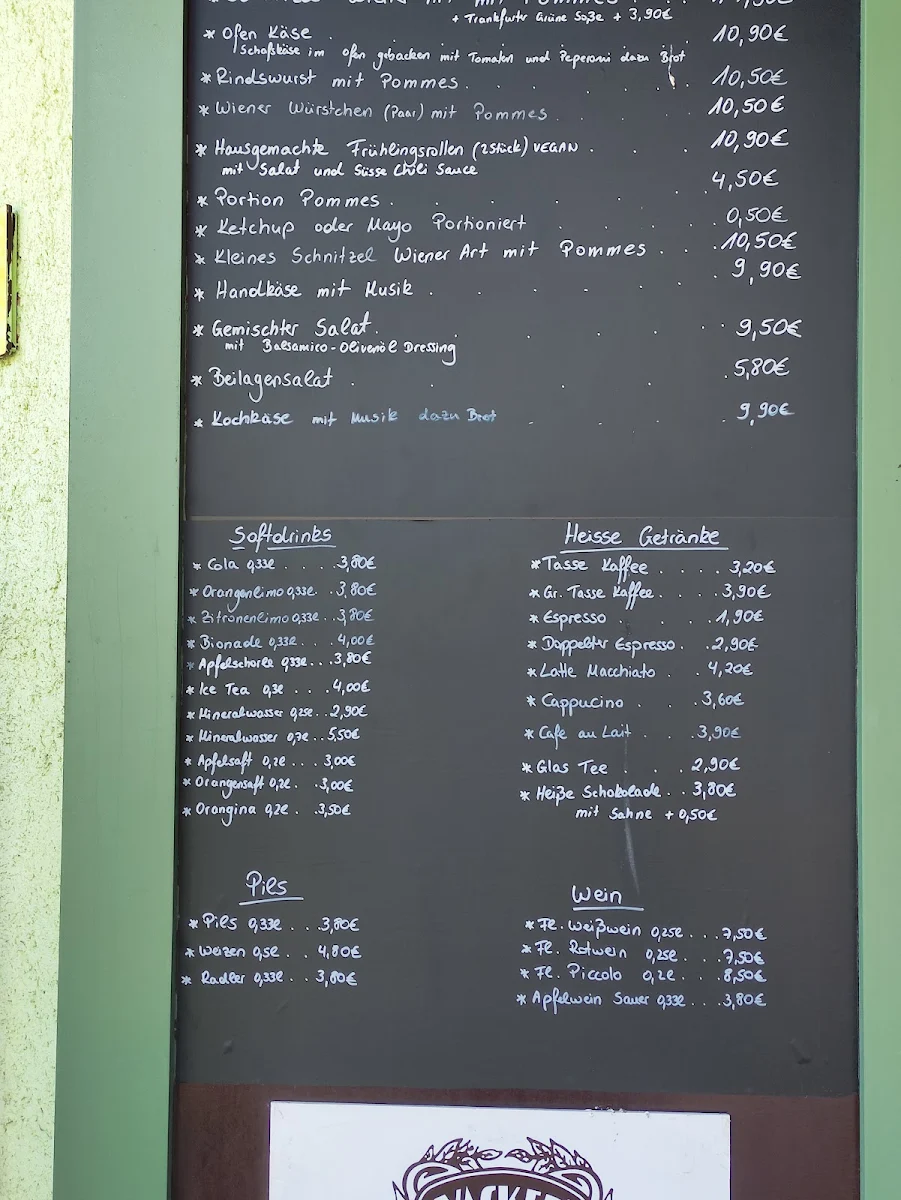 + Frankfurter Grüne Soße + 3,90€
* Ofen Käse . . . . 10,90€
Schafskäse im Ofen gebacken mit Tomaten und Peperoni dazu Brot
* Rindswurst mit Pommes . . . . 10,50€
* Wiener Würstchen (Paar) mit Pommes . . . 10,50€
* Hausgemachte Frühlingsrollen (2 Stück) VEGAN . . . 10,90€
mit Salat und Süsse Chili Sauce
* Portion Pommes . . . . 4,50€
* Ketchup oder Mayo Portioniert . . . 0,50€
* Kleines Schnitzel Wiener Art mit Pommes . . . 10,50€
* Handkäse mit Musik . . . . 9,90€
* Gemischter Salat . . . . 9,50€
mit Balsamico-Olivenöl Dressing
* Beilagensalat . . . . 5,80€
* Kochkäse mit Musik dazu Brot . . . 9,90€
Softdrinks
* Cola 0,33l . . . . 3,80€
* Orangenlimo 0,33l . . 3,80€
* Zitronenlimo 0,33l . . 3,80€
* Bionade 0,33l . . 4,00€
* Apfelschorle 0,33l . . . 3,80€
* Ice Tea 0,3l . . . 4,00€
* Mineralwasser 0,25l . . 2,90€
* Mineralwasser 0,7l . . 5,50€
* Apfelsaft 0,2l . . . 3,00€
* Orangensaft 0,2l . . 3,00€
* Orangina 0,2l . . 3,50€
Heisse Getränke
* Tasse Kaffee . . . . 3,20€
* Gr. Tasse Kaffee . . . 3,90€
* Espresso . . . 1,90€
* Doppelter Espresso . . 2,90€
* Latte Macchiato . . 4,20€
* Cappucino . . 3,60€
* Cafe au Lait . . 3,90€
* Glas Tee . . 2,90€
* Heiße Schokolade . . 3,80€
mit Sahne + 0,50€
Pils
* Pils 0,33l . . . 3,80€
* Weizen 0,5l . . 4,80€
* Radler 0,33l . . . 3,80€
Wein
* Fl. Weißwein 0,25l . . . 7,50€
* Fl. Rotwein 0,25l . . . 7,50€
* Fl. Piccolo 0,2l . . . 8,50€
* Apfelwein Sauer 0,33l . . . 3,80€